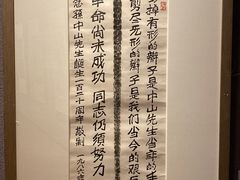 掉有形的辫子是中山先生当年的
剪尽无形的辫子是我们当今的艰
革命尚未成功 同志仍须努力
孙中山先生诞生一百二十周年敬制 一九八六